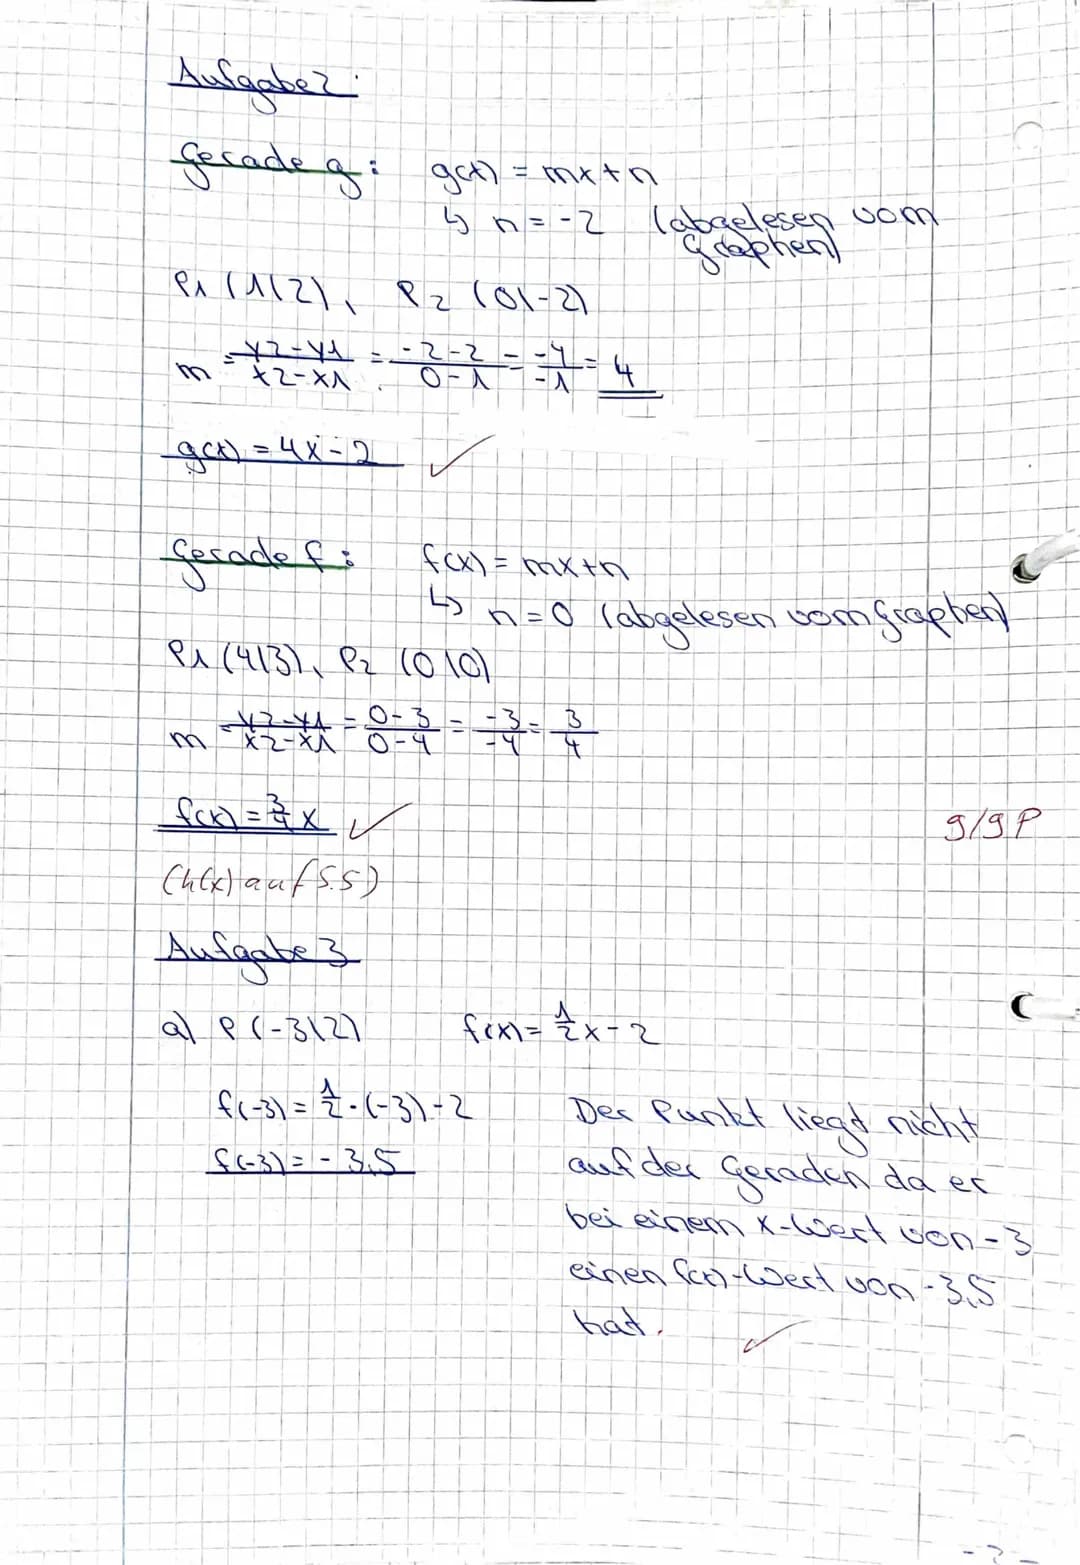 Aufgabe 2:
Gerade g: g(x) = mx+n
↳ n = -2 (abgelesen vom
Graphen)
P1 (1|2), P2 (0|-2)
m = y2-y1 / x2-x1 = -2-2 / 0-1 = -4 / -1 = 4
g(x) = 4x-2 ✓
Gerade f: f(x) = mx+n
↳ n = 0 (abgelesen vom Graphen)
P1 (4|3), P2 (0|0)
m = y2-y1 / x2-x1 = 0-3 / 0-4 = -3 / -4 = 3 / 4
f(x) = 3/4 x ✓
9/9P
(h(x) auf S.5)
Aufgabe 3
a) P(-3|2) f(x) = 1/2 x - 2
f(-3) = 1/2 · (-3) - 2
f(-3) = -3,5
Der Punkt liegt nicht
auf der Geraden da er
bei einem x-Wert von -3
einen f(x)-Wert von -3,5
hat. ✓